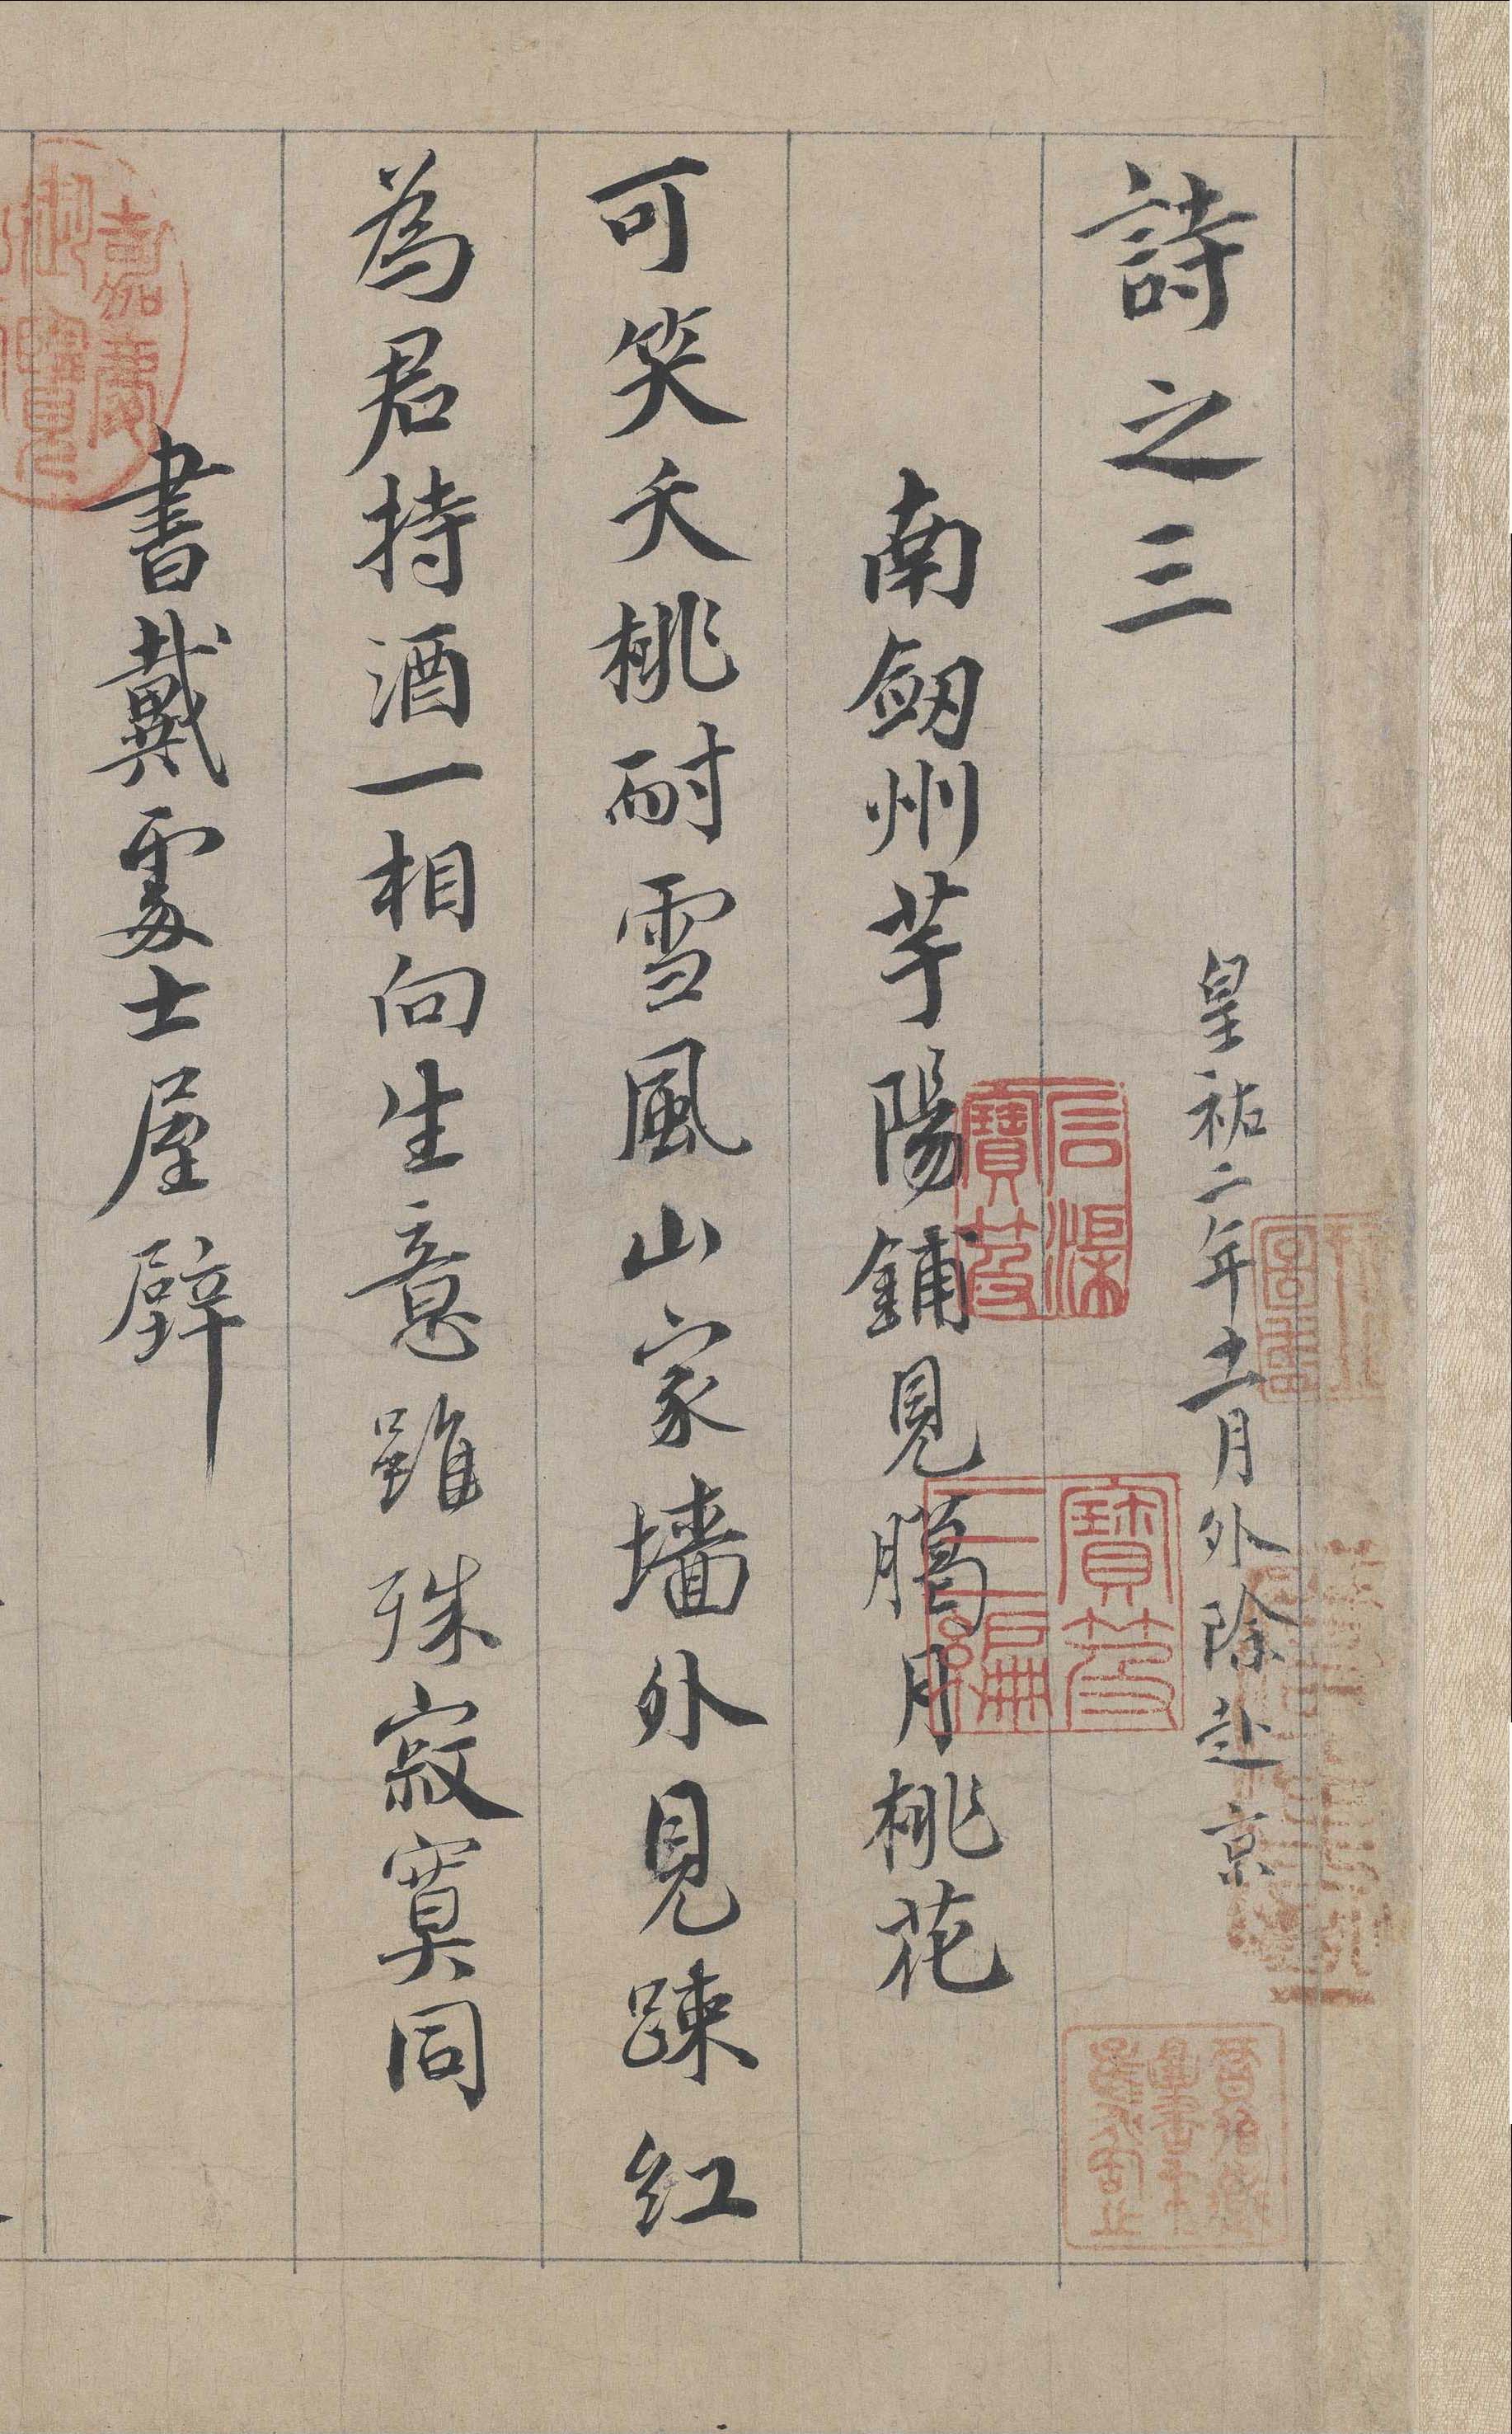 詩之三
皇祐二年十一月外除赴京
南劒州芋陽鋪見臈月桃花
可笑夭桃耐雪風山家墻外見踈紅
為君持酒一相向生意雖殊寂寞同
書戴處士屋壁
嘉慶御覽
寶笈三編